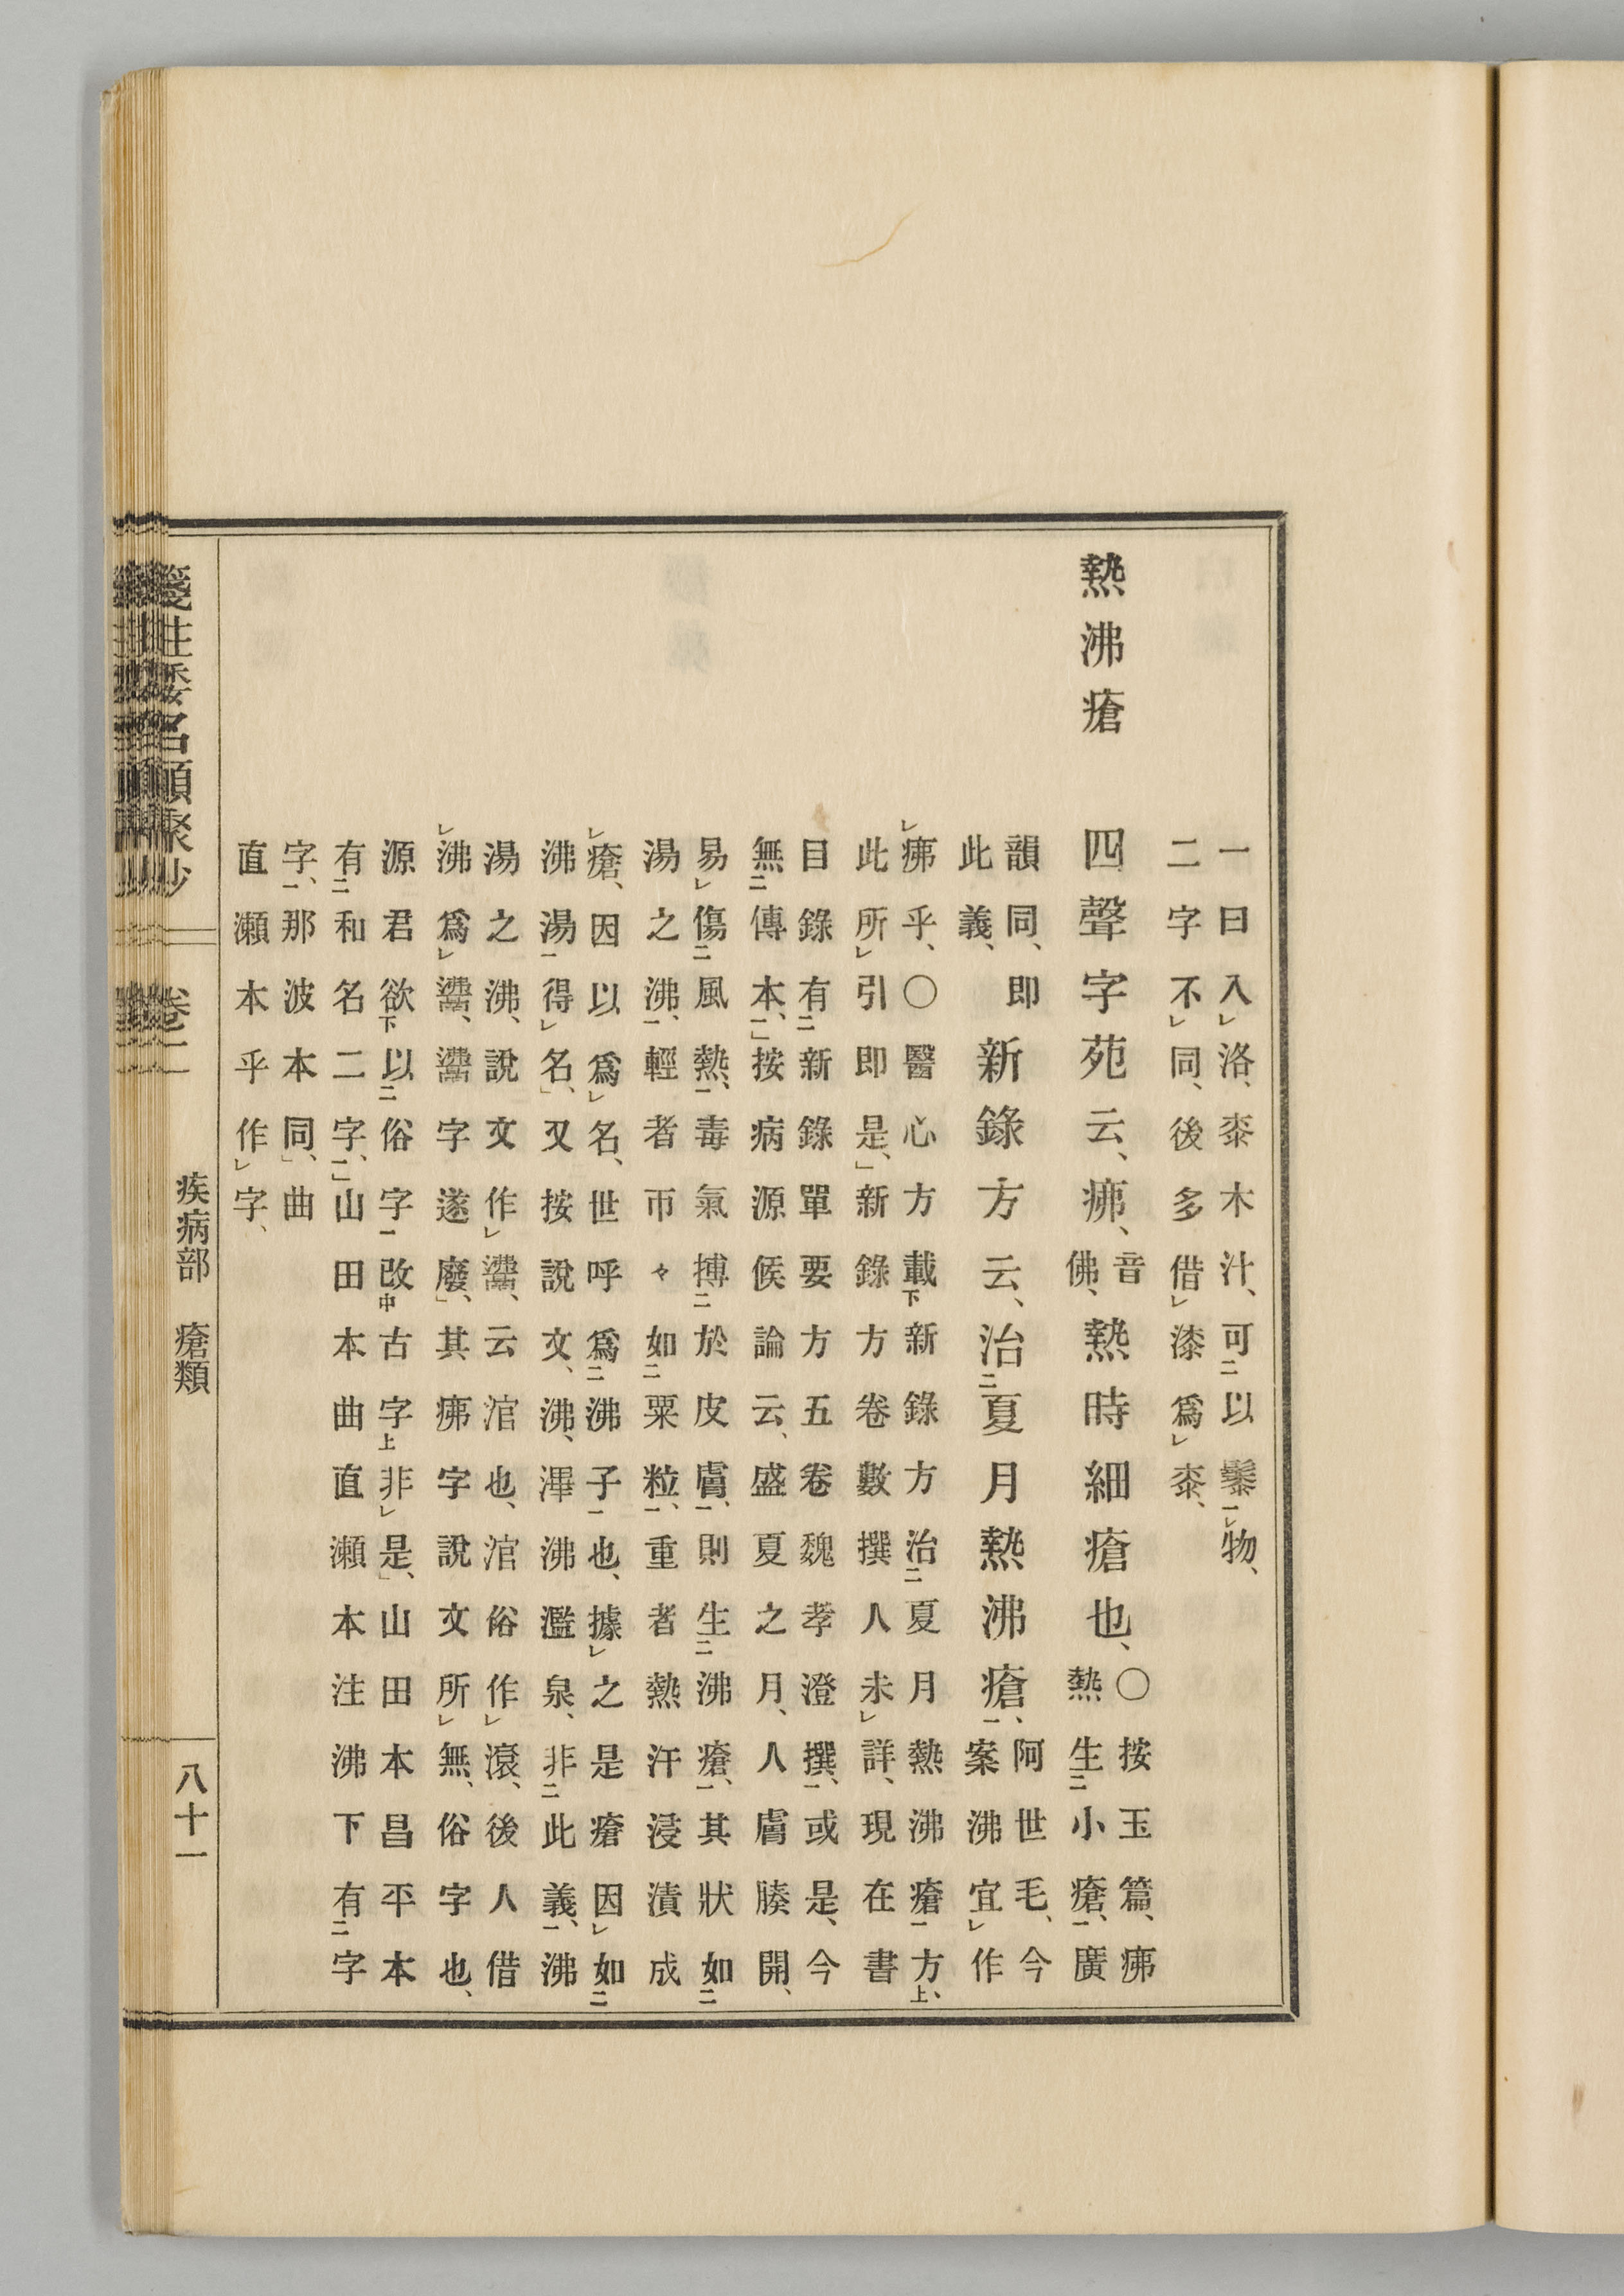 一曰入㆑洛、桼木汁、可㆓以鬃㆒㆑物、
二字不㆑同、後多借㆑漆爲㆑桼、
熱沸瘡
四聲字苑云、疿、音佛、熱時細瘡也、○按玉篇、疿熱生㆓小瘡㆒、廣
韻同、即此義、新錄方云、治㆓夏月熱沸瘡㆒、阿世毛、今案沸宜㆑作
㆑疿乎、○醫心方載㆘新錄方治㆓夏月熱沸瘡㆒方㆖、
此所㆑引即是、」新錄方卷數撰人未㆑詳、現在書
目錄有㆓新錄單要方五卷魏孝澄撰㆒、或是、今
無㆓傳本㆒、」按病源候論云、盛夏之月、人膚腠開、
易㆑傷㆓風熱㆒、毒氣搏㆓於皮膚㆒、則生㆓沸瘡㆒、其狀如㆓
湯之沸㆒、輕者帀々如㆓粟粒㆒、重者熱汗浸漬成
㆑瘡、因以爲㆑名、世呼爲㆓沸子㆒也、據㆑之是瘡因㆑如㆓
沸湯㆒得㆑名、」又按說文、沸、滭沸濫泉、非㆓此義㆒、沸
湯之沸、說文作㆑灊、云涫也、涫俗作㆑滾、後人借
㆑沸爲㆑灊、灊字遂廢、」其疿字說文所㆑無、俗字也、
源君欲㆘以㆓俗字㆒改㆗古字㆖非㆑是、」山田本昌平本
有㆓和名二字㆒、」山田本曲直瀨本注沸下有㆓字
字㆒、那波本同、」曲
直瀨本乎作㆑字、
箋注倭名類聚抄　卷二　疾病部　瘡類　八十一